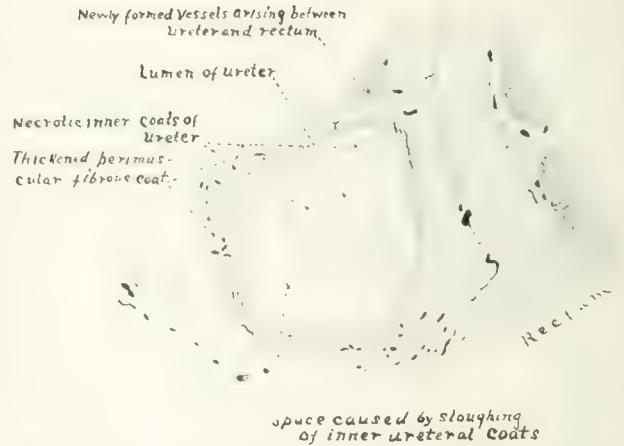 Newly formed Vessels arising between
ureter and rectum
Lumen of ureter
Necrotic inner coats of
ureter
Thickened perimus-
cular fibrous coat
Rectum
space caused by sloughing
of inner ureteral coats